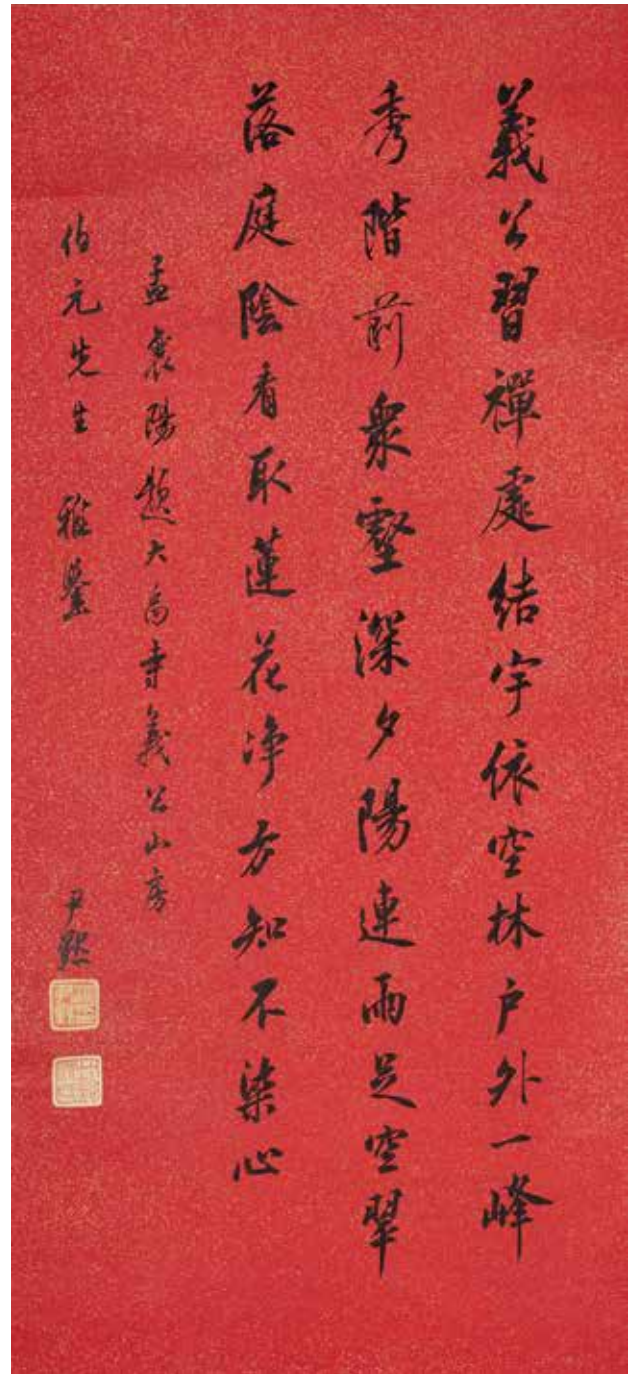 義公習禪處結宇依空林户外一峰
秀階前衆壑深夕陽連雨足空翠
落庭陰看取蓮花净方知不染心
孟襄陽題大禹寺義公山房
伯元先生 雅鑒
尹默